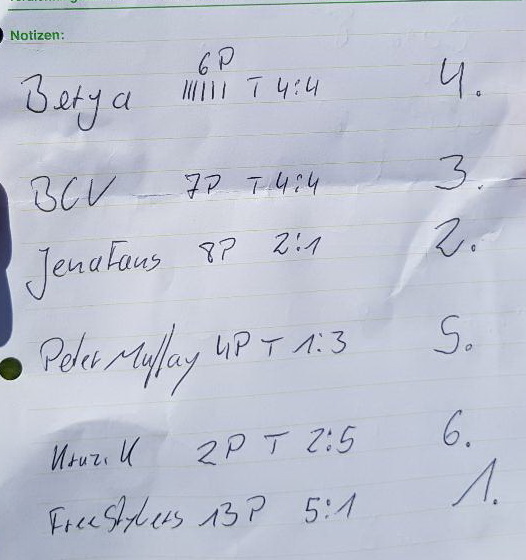 Notizen:
6P
Betya |||||| T 4:4 4.
BCV 7P T 4:4 3.
JenaFans 8P 2:1 2.
Peter 4P T 1:3 5.
2P T 2:5 6.
Freestylers 13P 5:1 1.